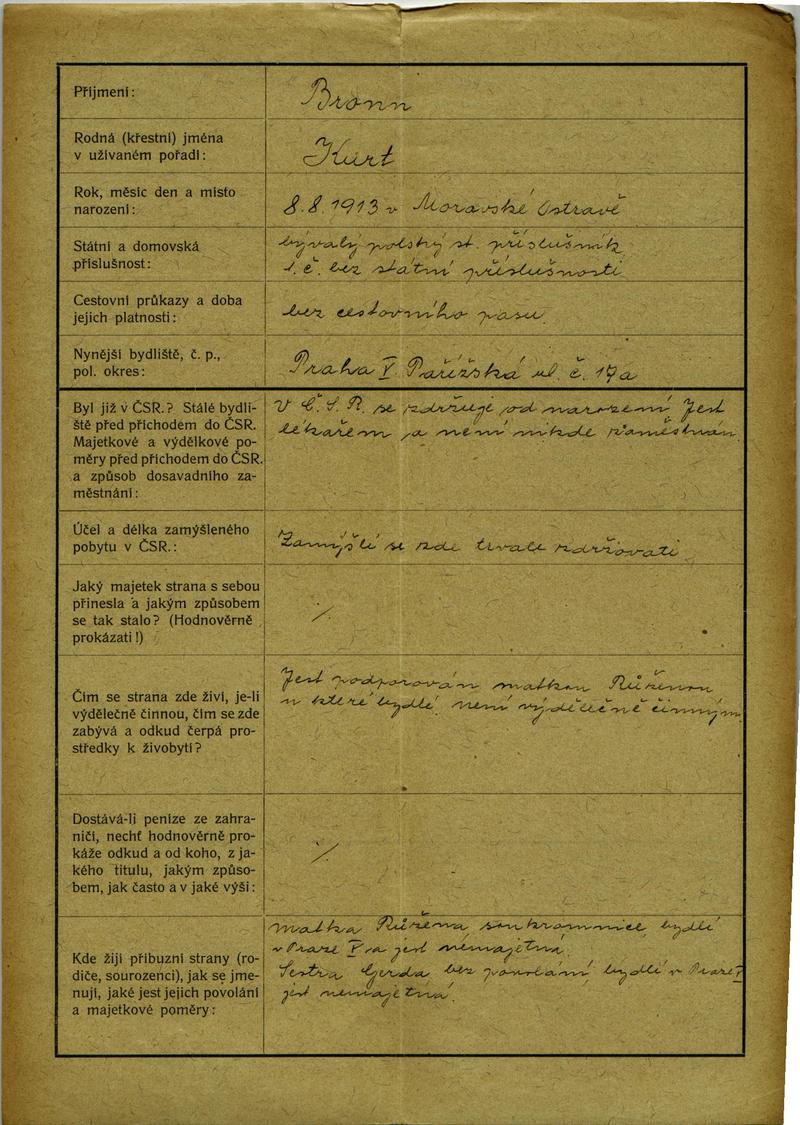 Příjmení:
Bronn
Rodná (křestní) jména
v užívaném pořadí:
Kurt
Rok, měsíc den a místo
narození:
8.8.1913 v Moravské Ostravě
Státní a domovská
příslušnost:
bývalý polský st. příslušník
t. č. bez státní příslušnosti
Cestovní průkazy a doba
jejich platnosti:
bez cestovního pasu.
Nynější bydliště, č. p.,
pol. okres:
Praha V. Pařížská ul. č. 17a
Byl již v ČSR.? Stálé bydli-
ště před příchodem do ČSR.
Majetkové a výdělkové po-
měry před příchodem do ČSR.
a způsob dosavadního za-
městnání:
V Č. S. R. se zdržuje od narození. Jest
lékařem a není nikde zaměstnán.
Účel a délka zamýšleného
pobytu v ČSR.:
Zamýšlí se zde trvale zdržovati.
Jaký majetek strana s sebou
přinesla a jakým způsobem
se tak stalo? (Hodnověrně
prokázati!)
⁒
Čím se strana zde živí, je-li
výdělečně činnou, čím se zde
zabývá a odkud čerpá pro-
středky k živobytí?
Jest podporován matkou Růženou
u které bydlí. není výdělečně činným.
Dostává-li peníze ze zahra-
ničí, nechť hodnověrně pro-
káže odkud a od koho, z ja-
kého titulu, jakým způso-
bem, jak často a v jaké výši:
⁒
Kde žijí příbuzní strany (ro-
diče, sourozenci), jak se jme-
nují, jaké jest jejich povolání
a majetkové poměry:
matka Růžena, soukromnice, bydlí
v Praze V. a jest nemajetná.
Sestra Gerda, bez povolání, bydlí v Praze V
jest nemajetná.